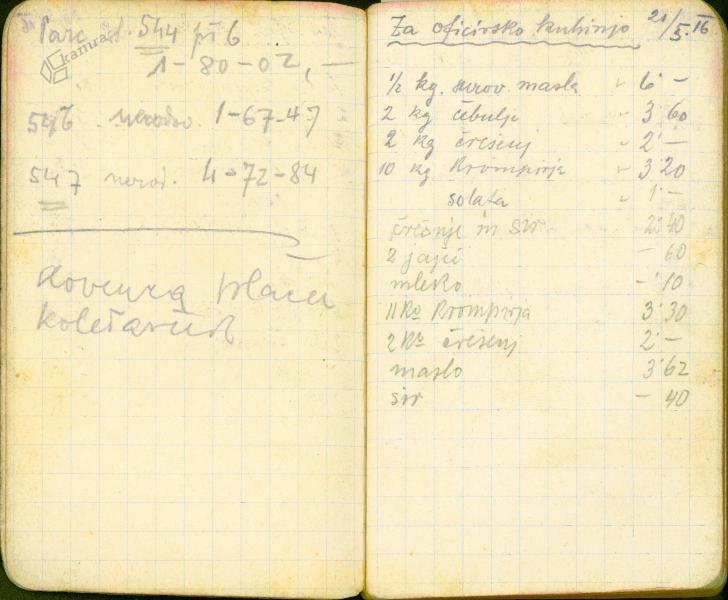 Parc. št. 544 pš 6
kamra
1-80-02,-
546 nerodov. 1-67-47
547 nerod. 4-72-84
plača
koletar
Za oficirsko kuhinjo 21/5.16
1/2 kg. surov. masla 6 -
2 kg čebulje 3 60
2 kg črešenj 2 -
10 kg Krompirja 3 20
solata 1 -
črešnje in sir 2 40
2 jajci - 60
mleko - 10
11 Ko Krompirja 3 30
2 Ko črešenj 2 -
maslo 3 62
sir - 40